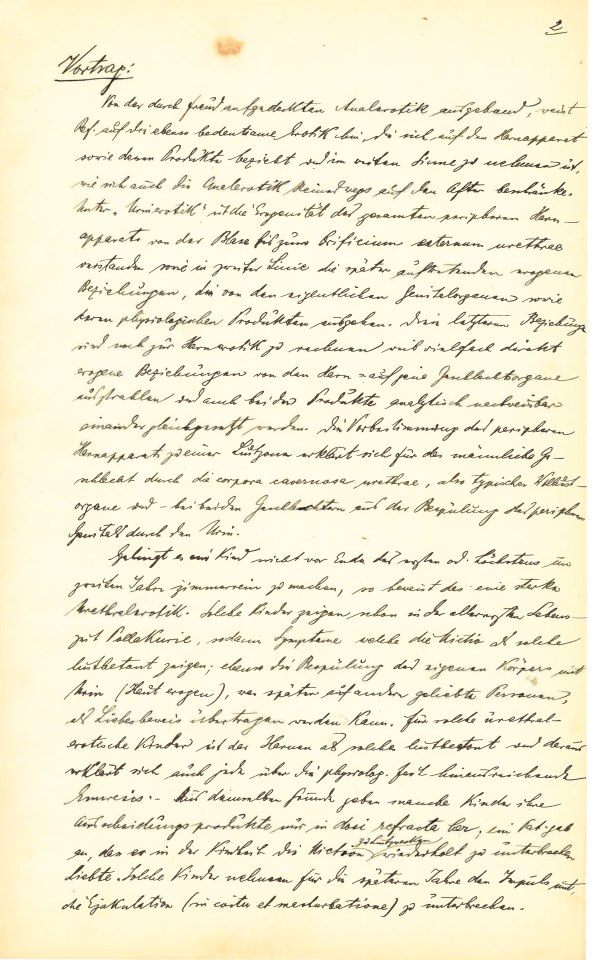 2
Vortrag:
Von der durch Freud aufgedeckten Analerotik ausgehend, weist
Ref. auf die ebenso bedeutsame Erotik hin, die sich auf den Harnapparat
sowie dessen Produkte bezieht und im weiten Sinne zu nehmen ist,
wie sich auch die Analerotik keineswegs auf den After beschränke.
Unter „Urinerotik“ ist die Erogenität des gesamten peripheren Harn-
apparats von der Blase bis zum Orificium externum urethrae
verstanden sowie in zweiter Linie die später auftretenden erogenen
Beziehungen, die von den eigentlichen Genitalorganen sowie
deren physiologischen Produkten ausgehen. Diese letzteren Beziehungen
sind noch zur Harnerotik zu rechnen weil vielfach direkt
erogene Beziehungen von den Harn- auf jene Geschlechtsorgane
ausstrahlen und auch beider Produkte analytisch nachweisbar
einander gleichgesetzt werden. Die Vorbestimmung des peripheren
Harnapparats zu einer Lustzone erklärt sich für das männliche Ge-
schlecht durch die corpora cavernosa urethrae, also typischer Wollust-
organe und - bei beiden Geschlechtern aus der Bespülung des peripheren
Genitals durch den Urin.
Gelingt es ein Kind nicht vor Ende des ersten od. höchstens im
zweiten Jahre zimmerrein zu machen, so beweist das eine starke
Urethralerotik. Solche Kinder zeigen schon in der allerersten Lebens-
zeit Pollakurie, sodann Symptome welche die Mictio als solche
lustbetont zeigen; ebenso die Bespülung des eigenen Körpers mit
Urin (Haut erogen), was später auf andere geliebte Personen,
als Liebesbeweis übertragen werden kann. Für solche urethral-
erotische Kinder ist das Harnen als solche lustbetont und daraus
erklärt sich auch jede über die physiolog. Zeit hinausreichende
Enuresis. - Aus demselben Grunde geben manche Kinder ihre
Ausscheidungsprodukte nur in dosi refracta her; ein Pat. gab
zu Lustzwecken
an, dass er in der Kindheit die Mictio wiederholt zu unterbrechen
liebte. Solche Kinder nehmen für die späteren Jahre den Impuls mit,
die Ejakulation (in coitu et masturbatione) zu unterbrechen.